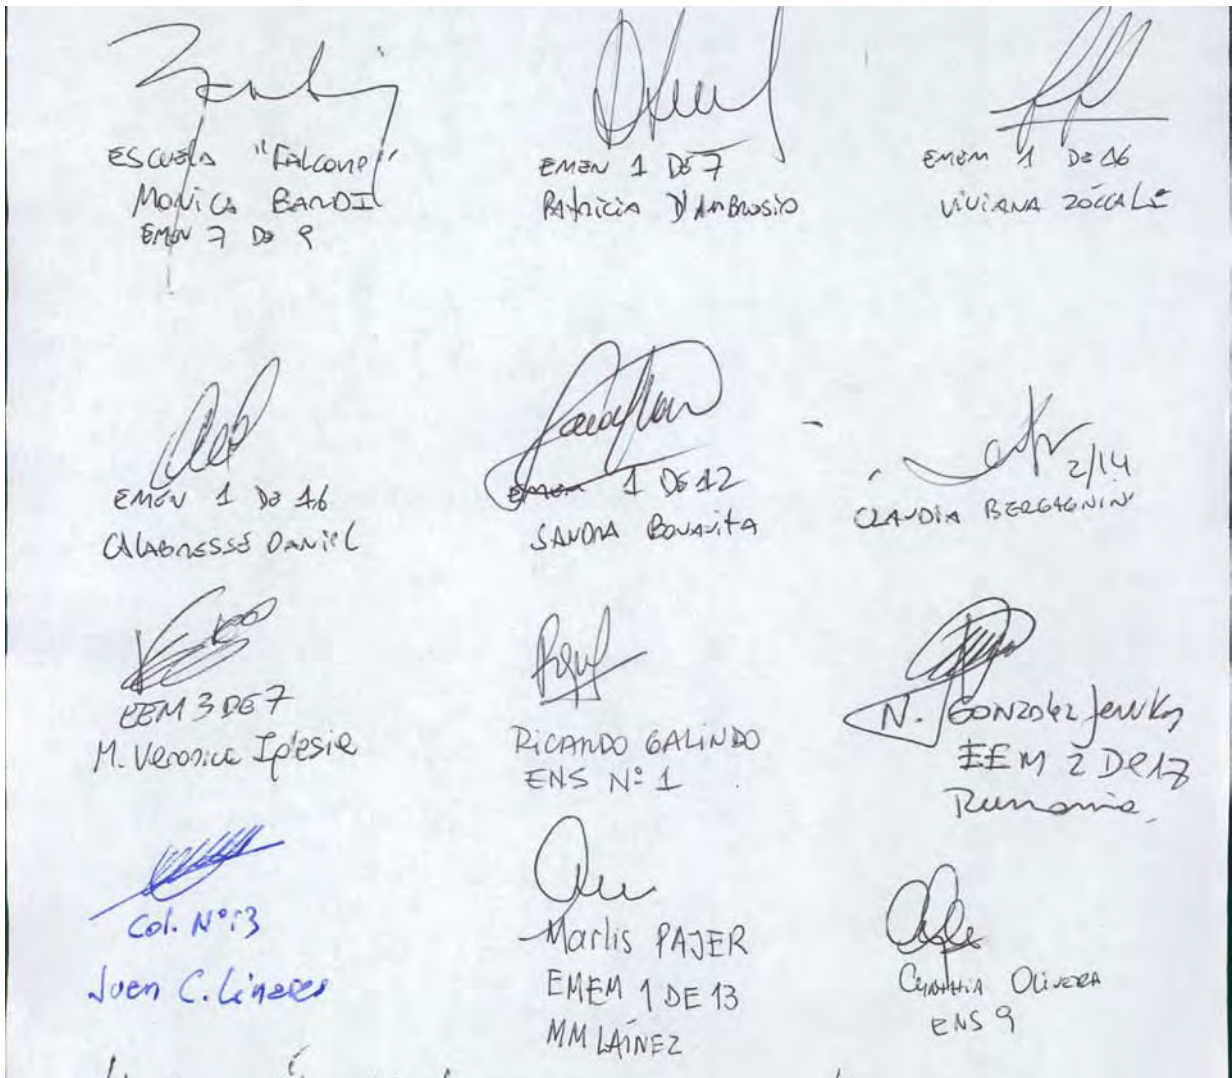 ESCUELA "FALCONE"
MONICA BANDI
EMEM 7 DE 9
EMEM 1 DE 7
PATRICIA D'AMBROSIO
EMEM 1 DE 16
VIVIANA ZÓCCALI
EMEM 1 DE 16
CALABRESSE DANIEL
EMEM 1 DE 12
SANDRA BONAVITA
2/14
CLAUDIA BERGAGNINI
EEM 3 DE 7
M. Veronica Iglesia
RICARDO GALINDO
ENS Nº 1
N. GONZALEZ
EEM 2 DE 17
Rumania
Col. Nº 13
Juan C. Linares
Marlis PAJER
EMEM 1 DE 13
MM LAÍNEZ
CYNTHIA OLIVERA
ENS 9